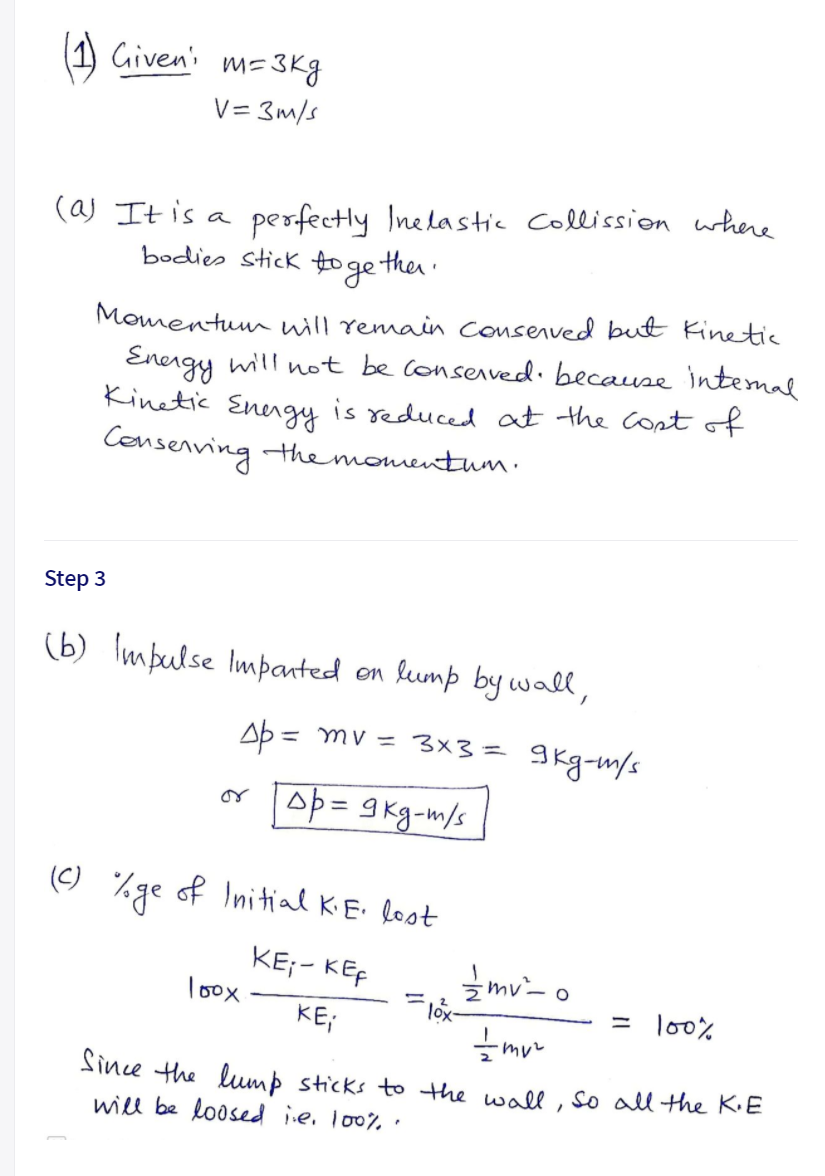 (1) Given: m=3Kg
V=3m/s
(a) It is a perfectly Inelastic Collission where
bodies stick together.
Momentum will remain conserved but Kinetic
Energy will not be Conserved. because internal
Kinetic Energy is reduced at the cost of
Conserving the momentum.
Step 3
(b) Impulse Imparted on lump by wall,
Δp = mv = 3×3 = 9Kg-m/s
or Δp = 9Kg-m/s
(C) %ge of Initial K.E. lost
100x (KEi - KEf)/KEi = 10²x (1/2 mv² - 0)/(1/2 mv²) = 100%
Since the lump sticks to the wall, so all the K.E
will be loosed i.e. 100%.